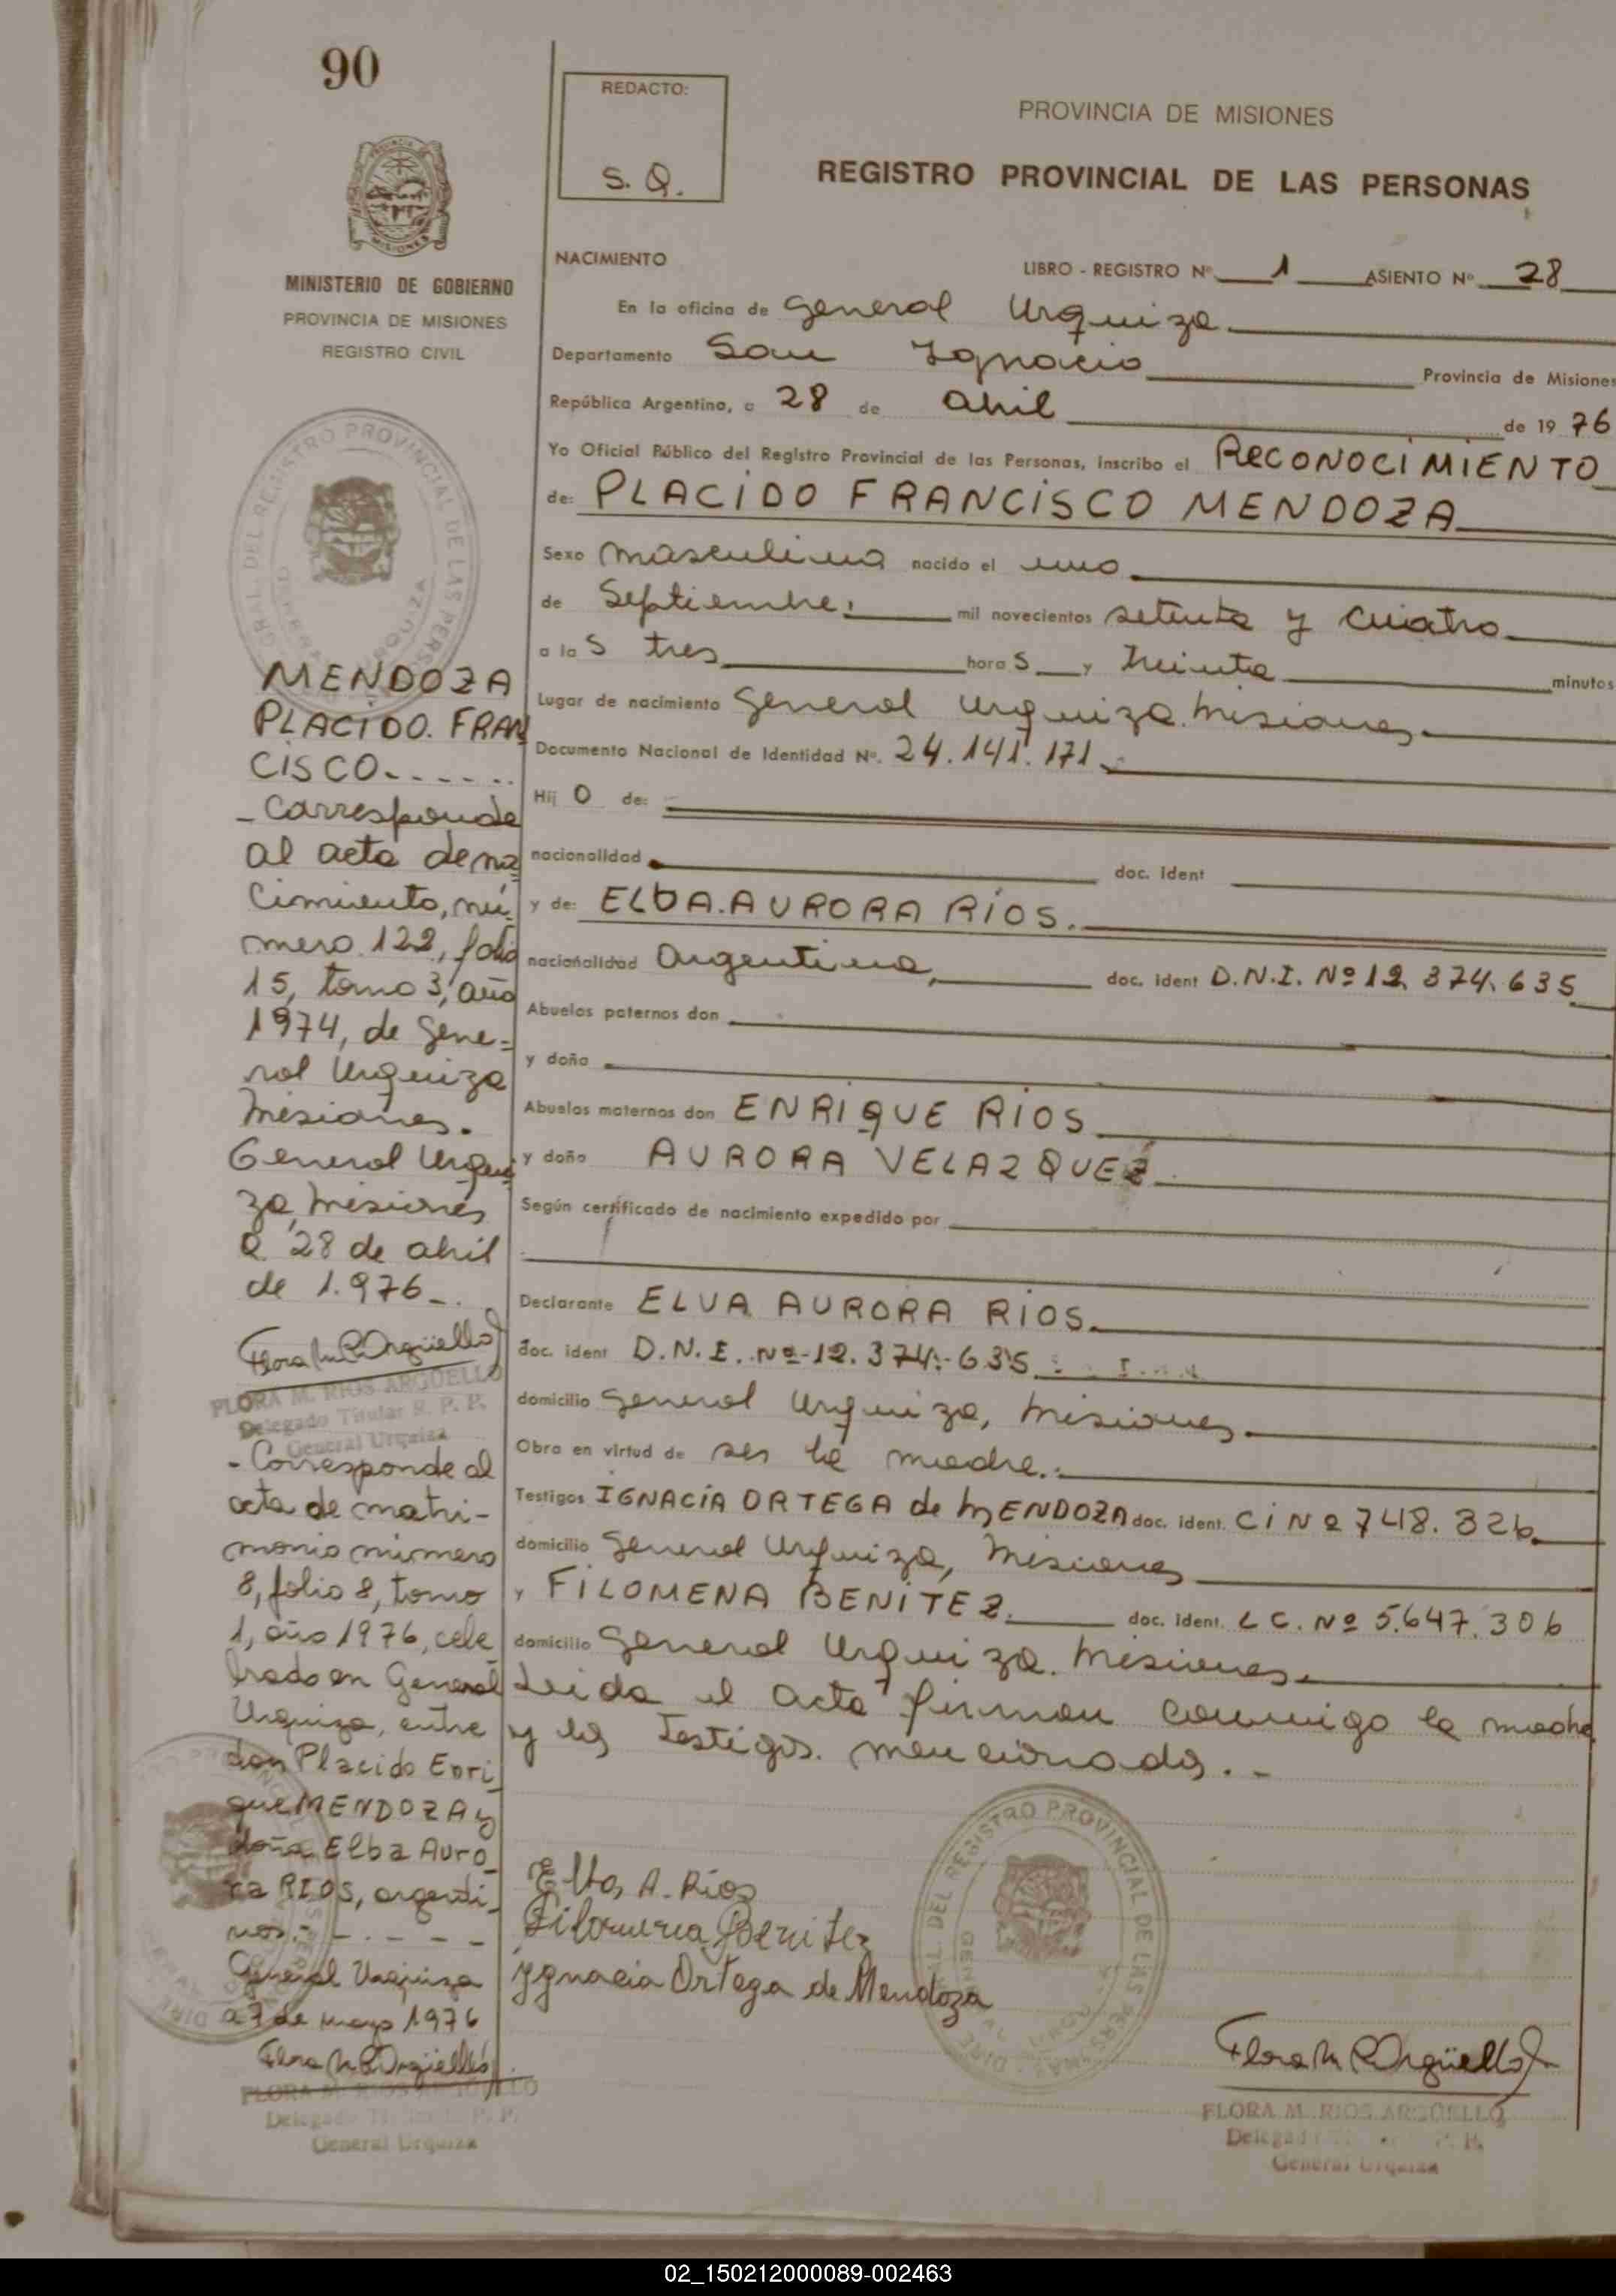 90
REDACTO:
S. Q.
PROVINCIA DE MISIONES
REGISTRO PROVINCIAL DE LAS PERSONAS
MINISTERIO DE GOBIERNO
PROVINCIA DE MISIONES
REGISTRO CIVIL
NACIMIENTO
LIBRO - REGISTRO Nº 1 ASIENTO Nº 28
En la oficina de General Urquiza
Departamento San Ignacio Provincia de Misiones
República Argentina, a 28 de abril de 19 76
Yo Oficial Público del Registro Provincial de las Personas, inscribo el RECONOCIMIENTO
de: PLACIDO FRANCISCO MENDOZA
Sexo masculino nacido el uno
de Septiembre: mil novecientos setenta y cuatro
a la s tres hora s y treinta minutos
Lugar de nacimiento General Urquiza. Misiones
Documento Nacional de Identidad Nº. 24.141.171
Hij o de:
nacionalidad doc. ident
y de: ELBA. AURORA RIOS.
nacionalidad Argentina, doc. ident D.N.I. Nº 12.374.635
Abuelos paternos don
y doña
Abuelos maternos don ENRIQUE RIOS
y doña AURORA VELAZQUEZ
Según certificado de nacimiento expedido por
Declarante ELVA AURORA RIOS.
doc. ident D.N.I. Nº-12.374.-635
domicilio General Urquiza, Misiones
Obra en virtud de ser la madre.:
Testigos IGNACIA ORTEGA de MENDOZA doc. ident. CI Nº 748.326
domicilio General Urquiza, Misiones
y FILOMENA BENITEZ. doc. ident. L C. Nº 5.647.306
domicilio General Urquiza. Misiones
Leida el acta firman conmigo la madre
y los testigos. mencionados. -
Elba, A. Ríos
Filomena Benitez
Ygnacia Ortega de Mendoza
Flora M R Argüello
FLORA M. RIOS ARGÜELLO
General Urquiza
MENDOZA
PLACIDO. FRAN
CISCO.- - - - - -
- Corresponde
al acta de na
cimiento, nú
mero 122, folio
15, tomo 3, año
1974, de Gene=
ral Urquiza
Misiones.
General Urqui
za, Misiones
a 28 de abril
de 1.976_.
Flora M R Argüello
FLORA M. RIOS ARGÜELLO
Delegado Titular R. P. P.
General Urquiza
- Corresponde al
acta de matri-
monio número
8, folio 8, tomo
1, año 1976, cele
brado en General
Urquiza, entre
don Placido Enri
que MENDOZA y
doña Elba Auro
ra RIOS, argenti
nos.- - . - - -
General Urquiza
a 7 de mayo 1976
Flora M R Argüello
FLORA M. RIOS ARGÜELLO
General Urquiza
02_150212000089-002463